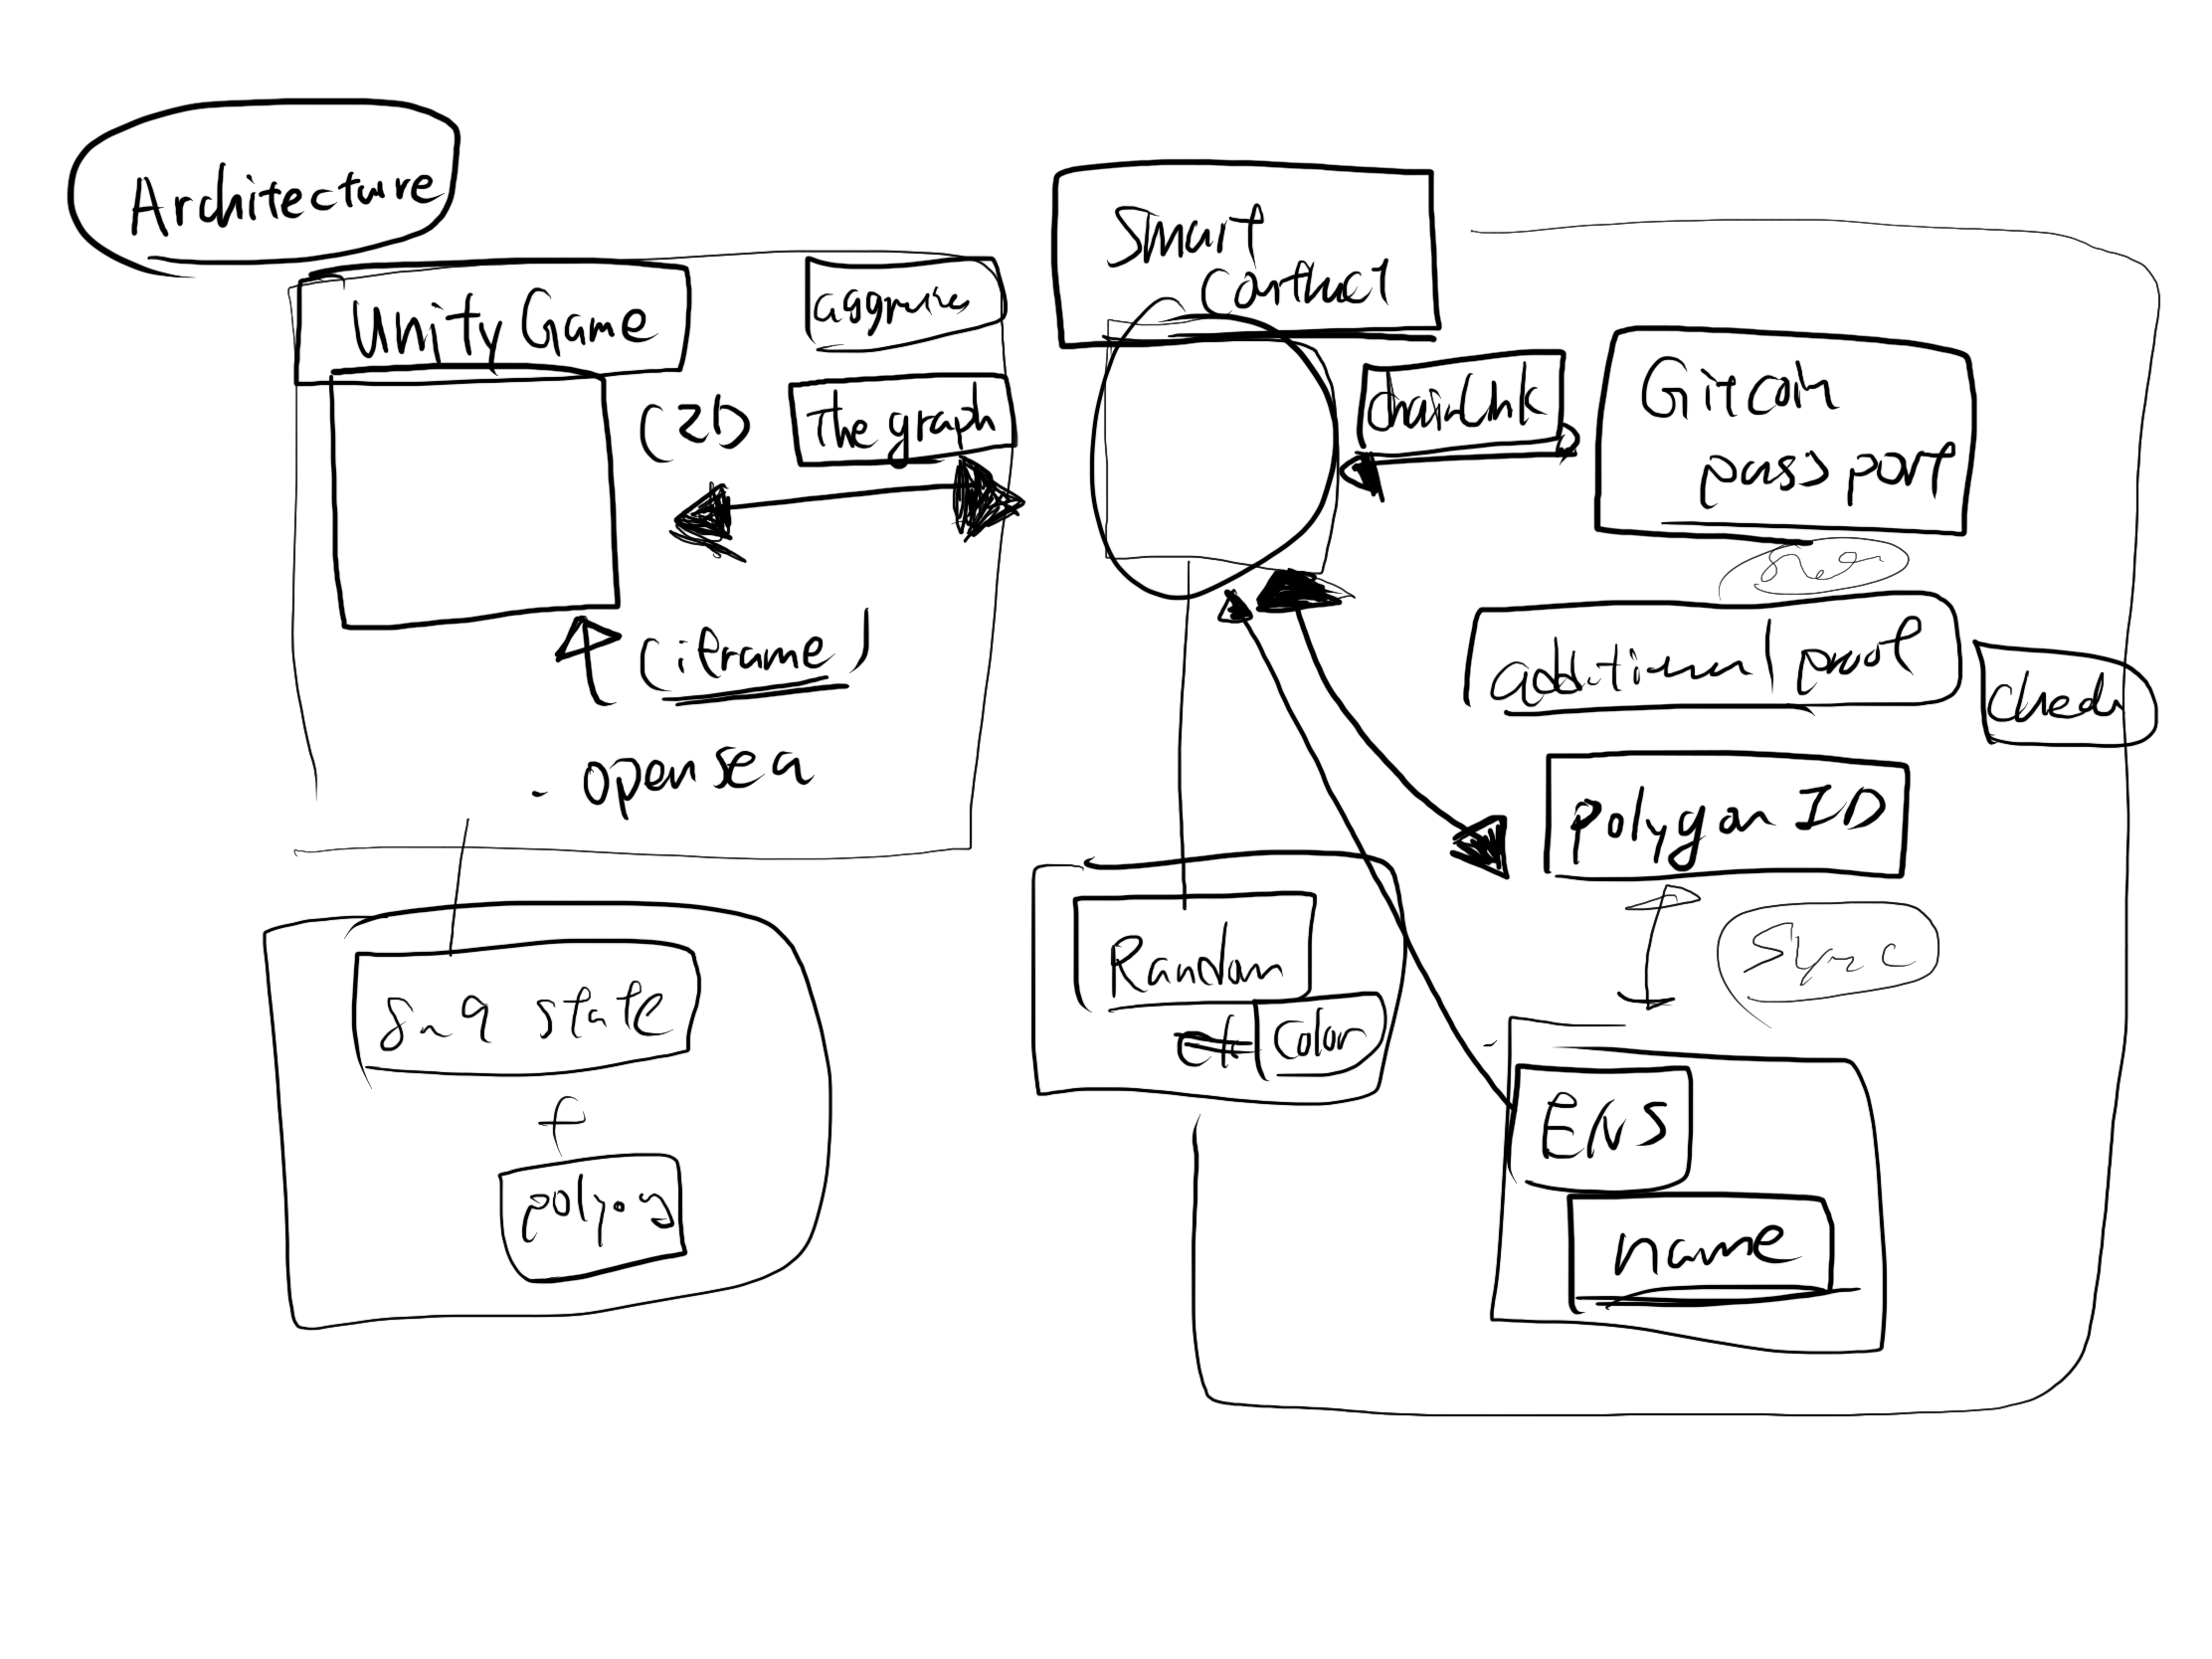 Architecture
Unity Game
(2D
the graph
(iframe)
- opensea
Smart
Contract
chainlink
Gitcoin
passport
additional proof
polygon ID
Sync
Random
etc
Color
ENS
name
state
+